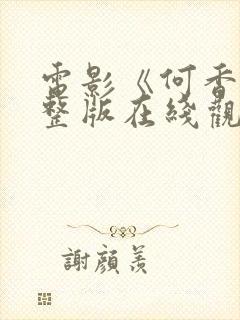 電影《何香
整版在綫觀
謝顔羨